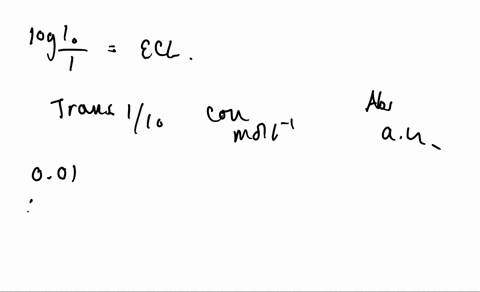 log I₀/I = ECL.
Trans I/I₀ con mol l⁻¹ Abs a.u.
0.01
: